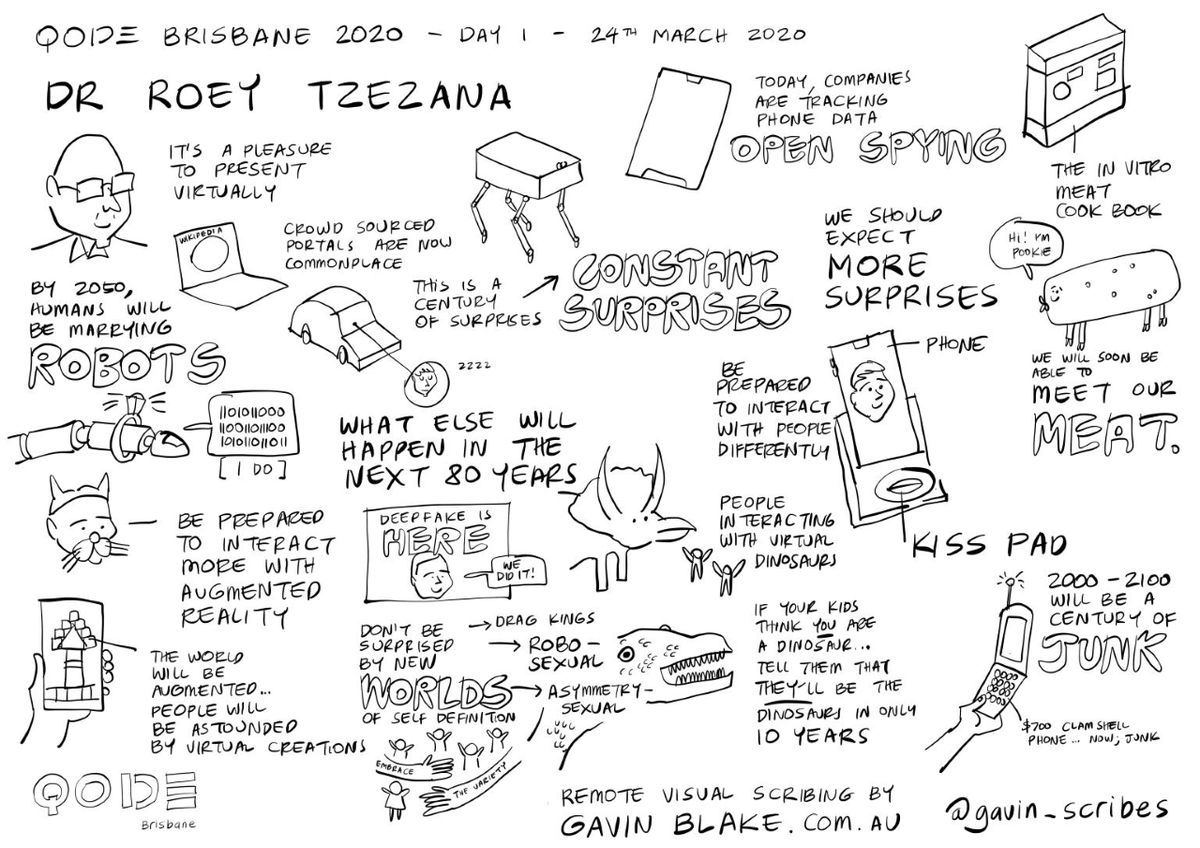 QODE BRISBANE 2020 - DAY 1 - 24TH MARCH 2020
DR ROEY TZEZANA
IT'S A PLEASURE
TO PRESENT
VIRTUALLY
WIKIPEDIA
CROWD SOURCED
PORTALS ARE NOW
COMMONPLACE
BY 2050,
HUMANS WILL
BE MARRYING
ROBOTS
1101011000
11001101100
10101101011
[I DO]
THIS IS A
CENTURY
OF SURPRISES
CONSTANT
SURPRISES
ZZZZ
TODAY, COMPANIES
ARE TRACKING
PHONE DATA
OPEN SPYING
THE IN VITRO
MEAT
COOK BOOK
WE SHOULD
EXPECT
MORE
SURPRISES
Hi! I'M
POOKIE
WE WILL SOON BE
ABLE TO
MEET OUR
MEAT.
WHAT ELSE WILL
HAPPEN IN THE
NEXT 80 YEARS
BE
PREPARED
TO INTERACT
WITH PEOPLE
DIFFERENTLY
PHONE
KISS PAD
BE PREPARED
TO INTERACT
MORE WITH
AUGMENTED
REALITY
DEEPFAKE IS
HERE
WE
DID IT!
PEOPLE
INTERACTING
WITH VIRTUAL
DINOSAURS
THE WORLD
WILL BE
AUGMENTED...
PEOPLE WILL
BE ASTOUNDED
BY VIRTUAL CREATIONS
DON'T BE
SURPRISED
BY NEW
WORLDS
OF SELF DEFINITION
DRAG KINGS
ROBO-
SEXUAL
ASYMMETRY-
SEXUAL
EMBRACE
THE VARIETY
IF YOUR KIDS
THINK YOU ARE
A DINOSAUR...
TELL THEM THAT
THEY'LL BE THE
DINOSAURS IN ONLY
10 YEARS
2000-2100
WILL BE A
CENTURY OF
JUNK
$700 CLAM SHELL
PHONE... NOW, JUNK
QODE
Brisbane
REMOTE VISUAL SCRIBING BY
GAVIN BLAKE.COM.AU
@gavin_scribes